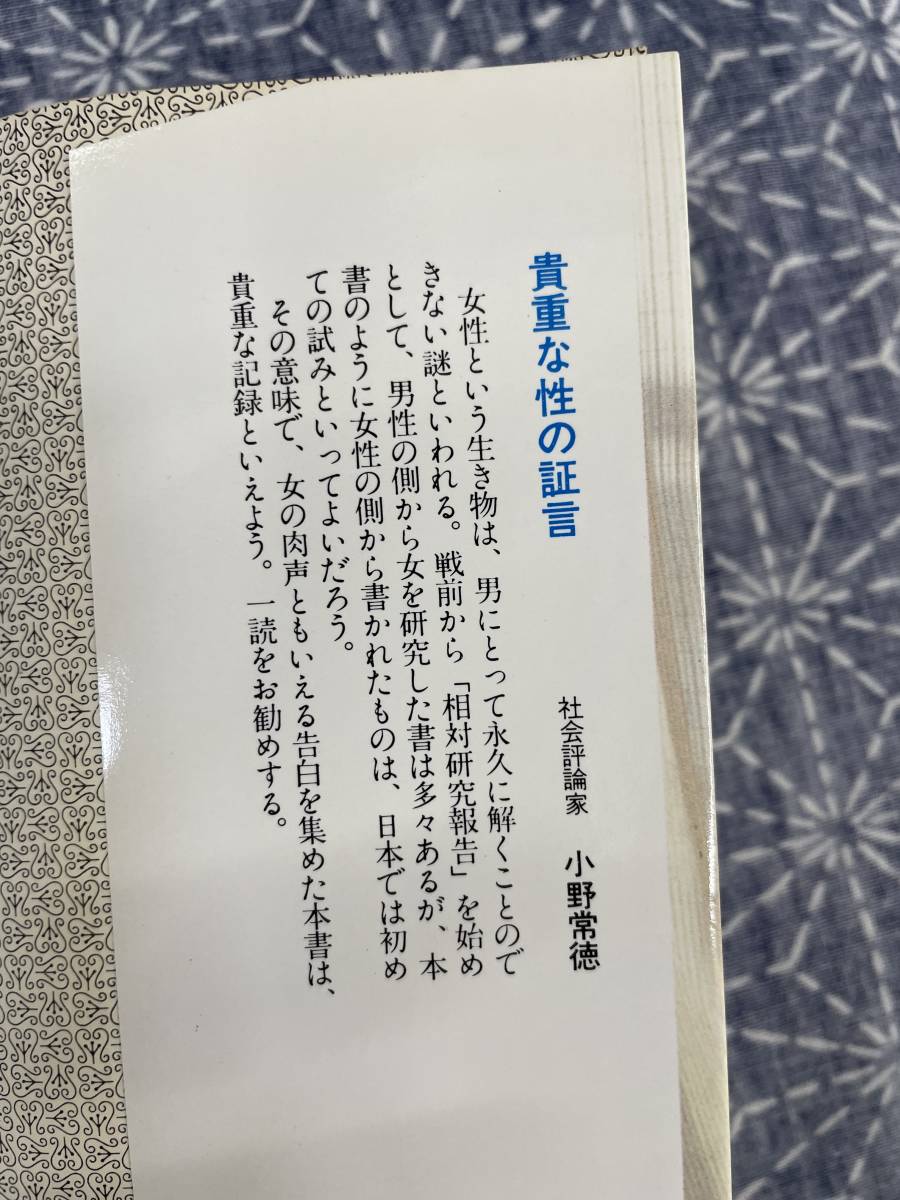 貴重な性の証言
社会評論家 小野常徳
女性という生き物は、男にとって永久に解くことので
きない謎といわれる。戦前から「相対研究報告」を始め
として、男性の側から女を研究した書は多々あるが、本
書のように女性の側から書かれたものは、日本では初め
ての試みといってよいだろう。
その意味で、女の肉声ともいえる告白を集めた本書は、
貴重な記録といえよう。一読をお勧めする。